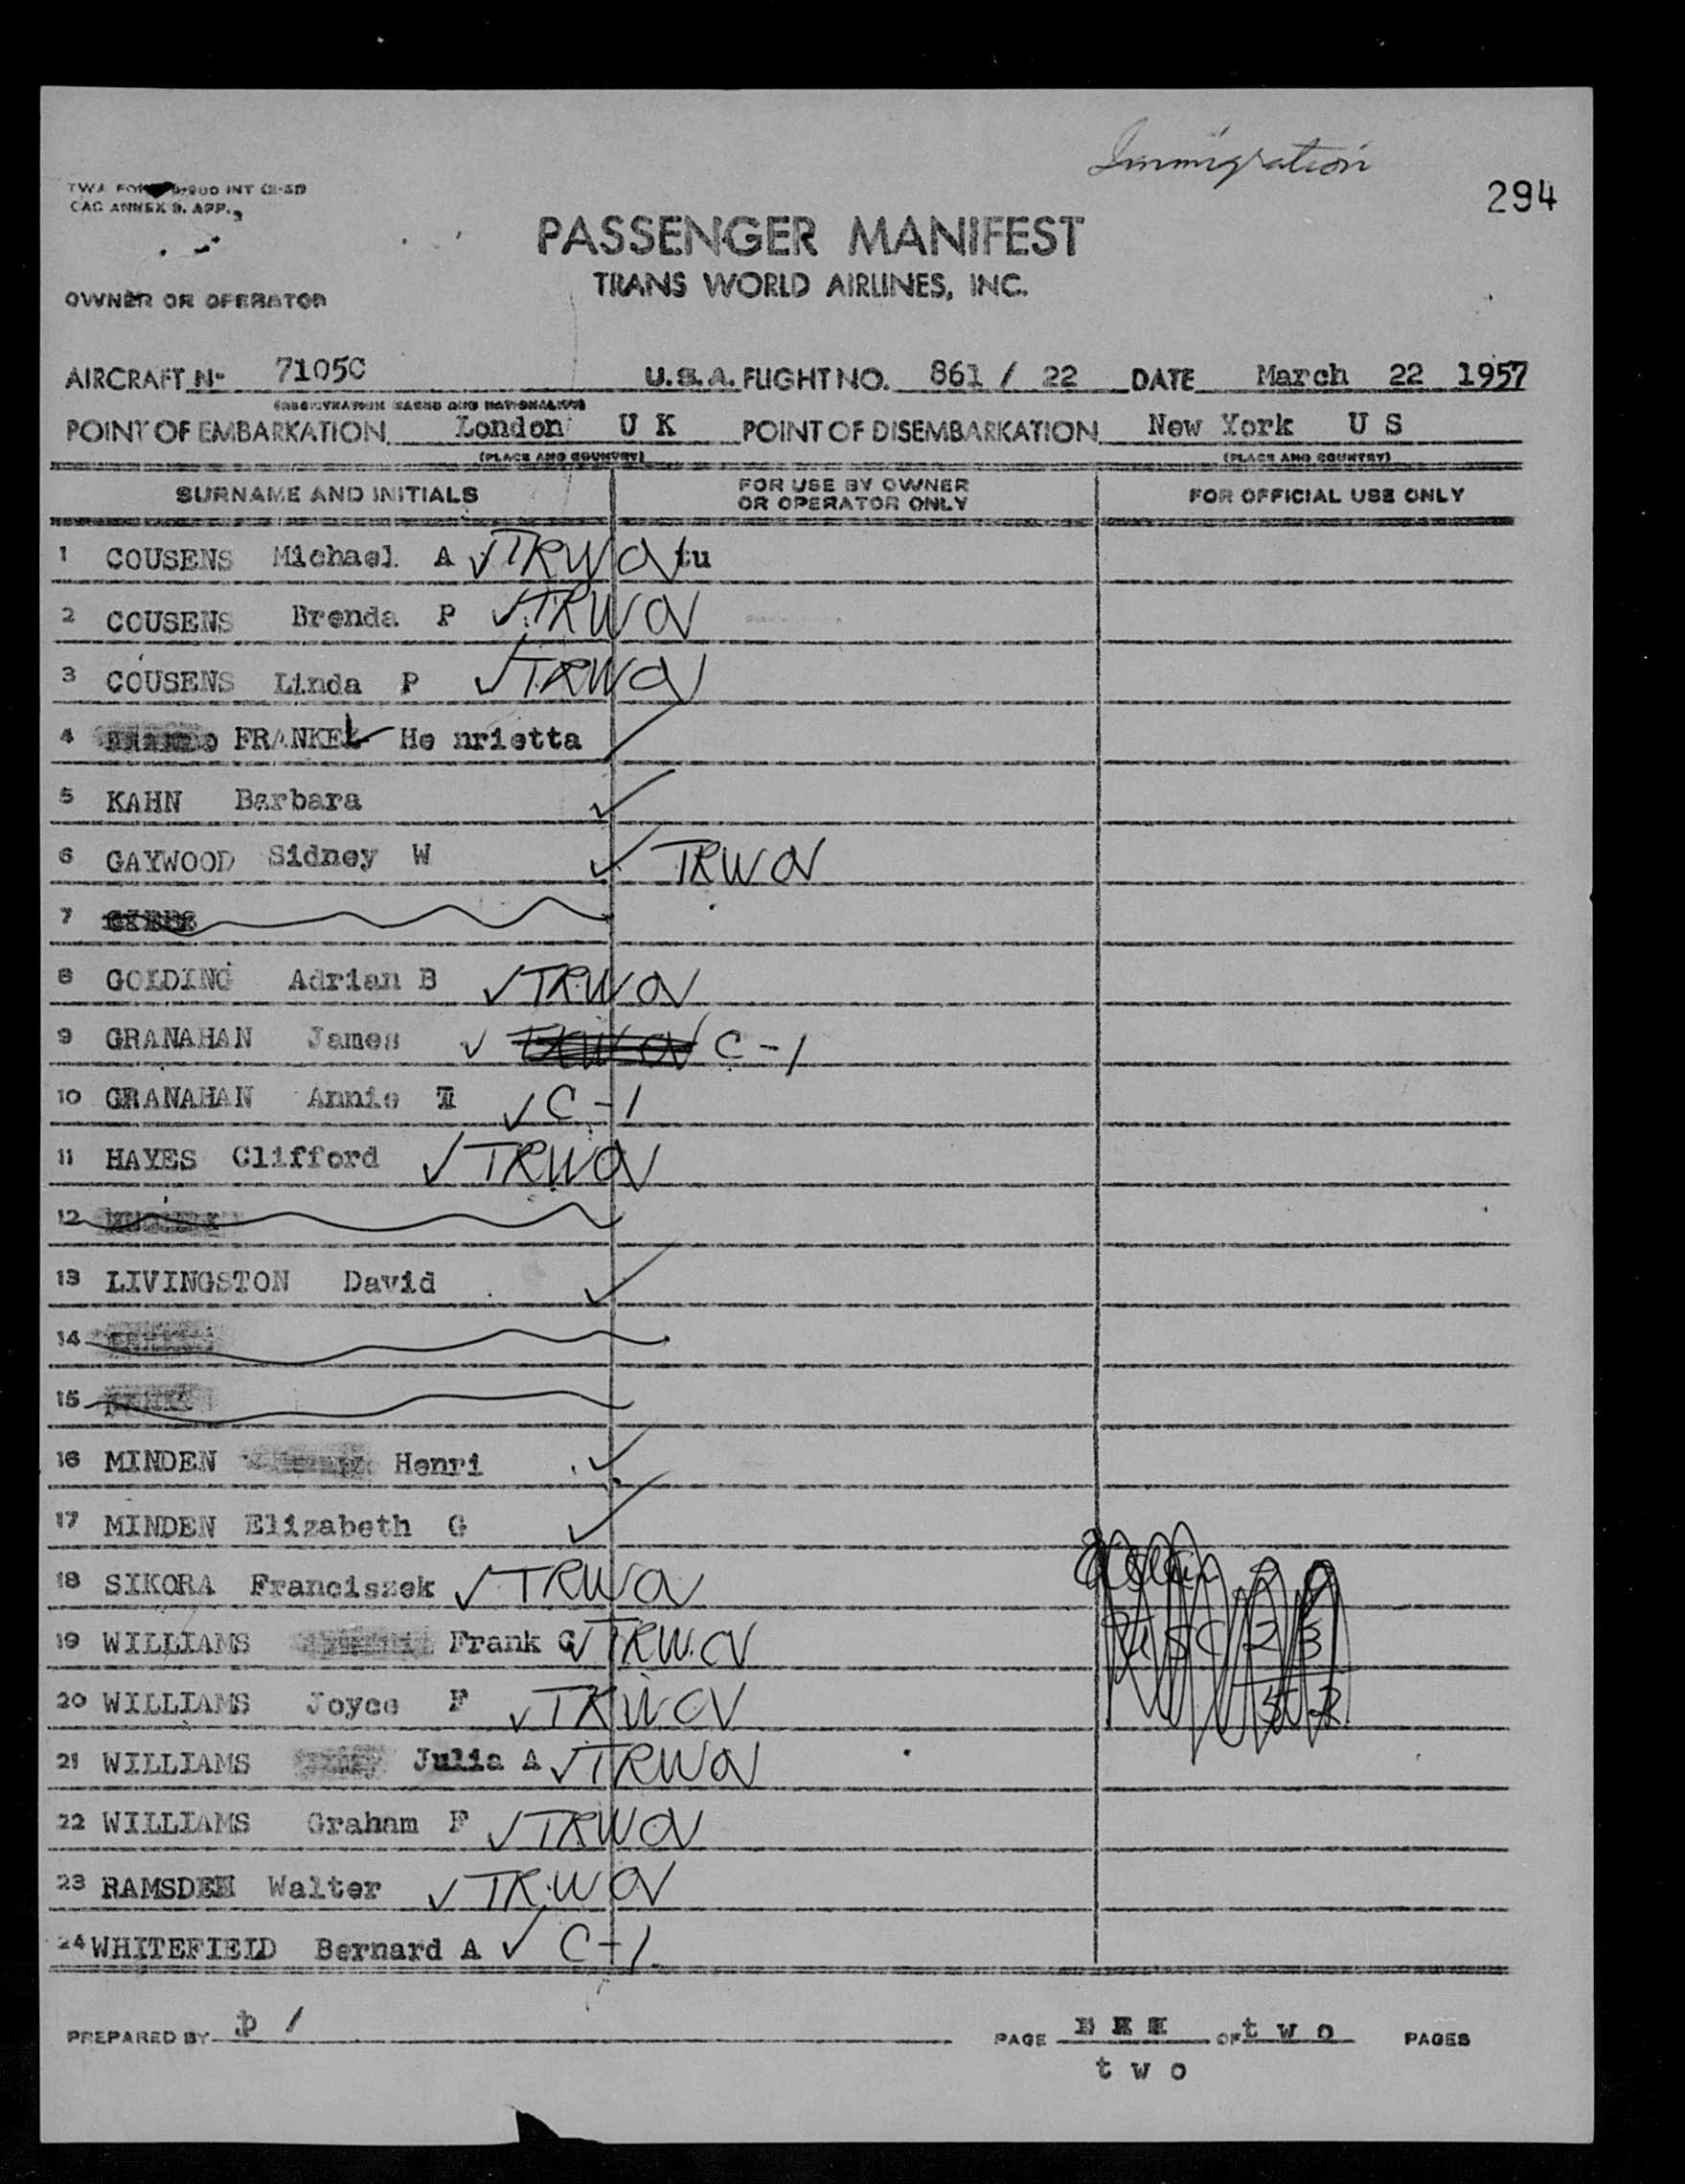 Immigration
294
CAC ANNEX 9. APP.
PASSENGER MANIFEST
TRANS WORLD AIRLINES, INC.
OWNER OR OPERATOR
AIRCRAFT Nº 7105C U.S.A. FLIGHT NO. 861 / 22 DATE March 22 1957
POINT OF EMBARKATION London U K POINT OF DISEMBARKATION New York U S
(PLACE AND COUNTRY) (PLACE AND COUNTRY)
SURNAME AND INITIALS FOR USE BY OWNER OR OPERATOR ONLY FOR OFFICIAL USE ONLY
1 COUSENS Michael A ✓TRWOV tu
2 COUSENS Brenda P ✓TRWOV
3 COUSENS Linda P ✓TRWOV
4 FRANKEL He nrietta ✓
5 KAHN Barbara ✓
6 GAYWOOD Sidney W ✓ TRWOV
7
8 GOLDING Adrian B ✓TRWOV
9 GRANAHAN James ✓ C-1
10 GRANAHAN Annie T ✓ C-1
11 HAYES Clifford ✓TRWOV
12
13 LIVINGSTON David ✓
14
15
16 MINDEN Henri ✓
17 MINDEN Elizabeth G ✓
18 SIKORA Franciszek ✓TRWOV
19 WILLIAMS Frank G ✓TRWOV
20 WILLIAMS Joyce F ✓TRWOV
21 WILLIAMS Julia A ✓TRWOV
22 WILLIAMS Graham F ✓TRWOV
23 RAMSDEN Walter ✓TRWOV
24 WHITEFIELD Bernard A ✓ C-1
PREPARED BY p / PAGE OF t w o PAGES
t w o